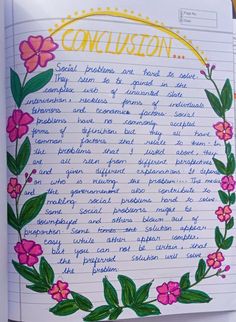 CONCLUSION...
Social problems are hard to solve.
They seem to be gained in the
complex web of unwanted state
intervention & reckless forms of individuals
behaviors and economics factors. social
problems have no commonly accepted
forms of definition but they all have
common factors that relate to them. In
the problems that I listed above, they
are all seen from different perspectives
and given different explanations. It depends
on who is viewing the problem. The media
and the government also contribute to
making social problems hard to solve.
Some social problems might be
downplayed and others blown out of
proportion. Some times one solution appear
easy while other appear complex.
but you can not be certain, that
the preferred solution will solve
the problem.